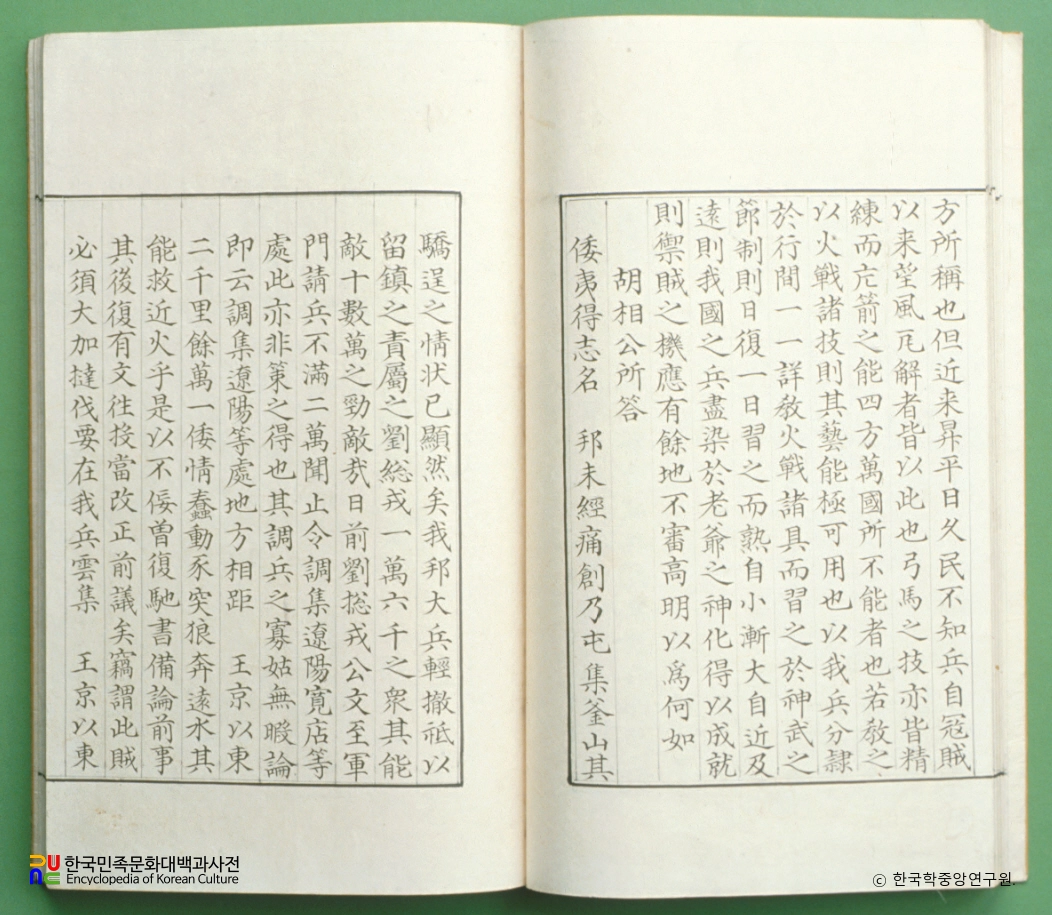 方所稱也但近来昇平日久民不知兵自冠賊
以来望風瓦解者皆以此也弓馬之技亦皆精
練而弓箭之能四方萬國所不能者也若敎之
以火戰諸技則其藝能極可用也以我兵分隷
於行間一一詳敎火戰諸具而習之於神武之
節制則日復一日習之而熟自小漸大自近及
遠則我國之兵盡染於老爺之神化得以成就
則禦賊之機應有餘地不審高明以爲何如
胡相公所答
倭夷得志名 邦未經痛創乃屯集釜山其
驕逞之情状已顯然矣我邦大兵輕撤祗以
留鎭之責屬之劉總戎一萬六千之衆其能
敵十數萬之勁敵㢤日前劉摠戎公文至軍
門請兵不滿二萬聞止令調集遼陽寬店等
處此亦非策之得也其調兵之寡姑無暇論
即云調集遼陽等處地方相距 王京以東
二千里餘萬一倭情蠢動豕突狼奔遠水其
能救近火乎是以不佞曽復馳書備論前事
其後復有文徃投當改正前議矣竊謂此賊
必須大加撻伐要在我兵雲集 王京以東
한국민족문화대백과사전
Encyclopedia of Korean Culture
ⓒ 한국학중앙연구원.